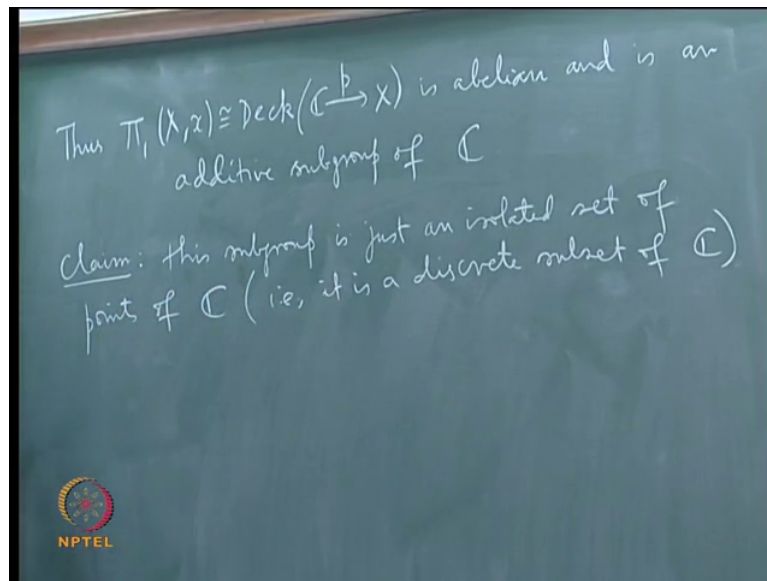 Thus Π₁(X,x) ≅ Deck(ℂ →ᵖ X) is abelian and is an
additive subgroup of ℂ
Claim: this subgroup is just an isolated set of
points of ℂ (i.e, it is a discrete subset of ℂ)
NPTEL